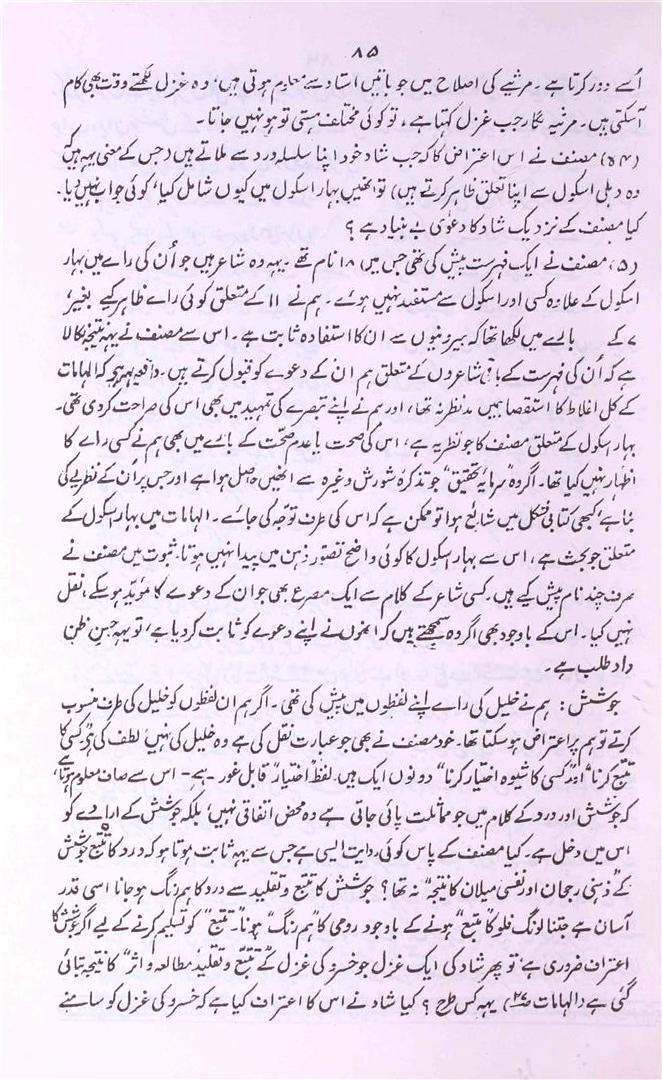 ۸۵
اُسے دور کرتا ہے۔ مرثیے کی اصلاح میں جو باتیں استاد سے معلوم ہوتی ہیں، وہ غزل لکھتے وقت بھی کام
آسکتی ہیں۔ مرثیہ نگار جب غزل کہتا ہے، تو کوئی مختلف ہستی تو ہو نہیں جاتا۔
(۵۴) مصنف نے اس اعتراض کا کہ جب شاد خود اپنا سلسلہ درد سے ملاتے ہیں (جس کے معنی یہہ ہیں کہ
وہ دہلی اسکول سے اپنا تعلق ظاہر کرتے ہیں) تو انھیں بہار اسکول میں کیوں شامل کیا، کوئی جواب نہیں دیا۔
کیا مصنف کے نزدیک شاد کا دعوٰی بے بنیاد ہے؟
(۵) مصنف نے ایک فہرست پیش کی تھی جس میں ۱۸ نام تھے۔ یہہ وہ شاعر ہیں جو اُن کی راے میں بہار
اسکول کے علاوہ کسی اور اسکول سے مستفید نہیں ہوئے۔ ہم نے ۱۱ کے متعلق کوئی راے ظاہر کیے بغیر،
۷ کے بارے میں لکھا تھا کہ بیرونیوں سے ان کا استفادہ ثابت ہے۔ اس سے مصنف نے یہہ نتیجہ نکالا
ہے کہ اُن کی فہرست کے باقی شاعروں کے متعلق ہم ان کے دعوے کو قبول کرتے ہیں۔ واقعہ یہہ ہے کہ الہامات
کے کل اغلاط کا استقصا ہمیں مدنظر نہ تھا، اور ہم نے اپنے تبصرے کی تمہید میں بھی اس کی صراحت کر دی تھی۔
بہار اسکول کے متعلق مصنف کا جو نظریہ ہے، اس کی صحت یا عدم صحت کے بارے میں بھی ہم نے کسی راے کا
اظہار نہیں کیا تھا۔ اگر وہ "سرمایۂ تحقیق" جو تذکرۂ شورش وغیرہ سے انھیں حاصل ہوا ہے اور جس پر اُن کے نظریے کی
بنا ہے، کبھی کتابی شکل میں شائع ہوا تو ممکن ہے کہ اس کی طرف توجہ کی جائے۔ الہامات میں بہار اسکول کے
متعلق جو بحث ہے، اس سے بہار اسکول کا کوئی واضح تصور ذہن میں پیدا نہیں ہوتا۔ ثبوت میں مصنف نے
صرف چند نام پیش کیے ہیں۔ کسی شاعر کے کلام سے ایک مصرع بھی جو ان کے دعوے کا مؤید ہو سکے، نقل
نہیں کیا۔ اس کے باوجود بھی اگر وہ سمجھتے ہیں کہ انھوں نے اپنے دعوے کو ثابت کر دیا ہے، تو یہہ حسنِ ظن
داد طلب ہے۔
جوشش: ہم نے خلیل کی راے اپنے لفظوں میں پیش کی تھی۔ اگر ہم ان لفظوں کو خلیل کی طرف منسوب
کرتے تو ہم پر اعتراض ہو سکتا تھا۔ خود مصنف نے بھی جو عبارت نقل کی ہے وہ خلیل کی نہیں، لطف کی ہے۔ کسی کا
تتبع کرنا" اور "کسی کا شیوہ اختیار کرنا" دونوں ایک ہیں۔ لفظ "اختیار" قابل غور ہے۔ اس سے صاف معلوم ہوتا ہے،
کہ جوشش اور درد کے کلام میں جو مماثلت پائی جاتی ہے وہ محض اتفاقی نہیں، بلکہ جوشش کے ارادے کو
اس میں دخل ہے۔ کیا مصنف کے پاس کوئی روایت ایسی ہے جس سے یہہ ثابت ہوتا ہو کہ درد کا تتبع جوشش
کے "ذہنی رجحان اور نفسی میلان کا نتیجہ" نہ تھا؟ جوشش کا تتبع و تقلید سے درد کا ہم رنگ ہو جانا اسی قدر
آسان ہے جتنا لونگ فلو کا "متبع" ہونے کے باوجود رومی کا "ہم رنگ" ہونا۔ "تتبع" کو تسلیم کرنے کے لیے اگر جوشش کا
اعتراف ضروری ہے تو پھر شاد کی ایک غزل جو خسرو کی غزل کے "تتبع و تقلید مطالعہ و اثر" کا نتیجہ بتائی
گئی ہے (الہامات) یہہ کس طرح؟ کیا شاد نے اس کا اعتراف کیا ہے کہ خسرو کی غزل کو سامنے